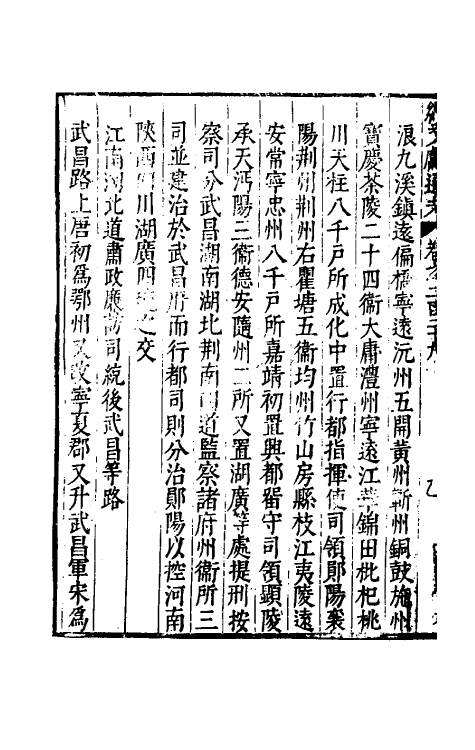 浪九溪鎮遠偏橋寧遠沅州五開黃州蘄州銅鼓施州
寶慶茶陵二十四衞大庸澧州寧遠江華錦田枇杷桃
川天柱八千戶所成化中置行都指揮使司領鄖陽襄
陽荆州荆州右瞿塘五衞均州竹山房縣枝江夷陵遠
安常寧忠州八千戶所嘉靖初置興都留守司領顯陵
承天沔陽三衞德安隨州二所又置湖廣等處提刑按
察司分武昌湖南湖北荆南四道監察諸府州衞所三
司並建治於武昌府而行都司則分治鄖陽以控河南
陝西四川湖廣四
之交
江南湖北道肅政廉訪司統後武昌等路
武昌路上唐初爲鄂州又改寧夏郡又升武昌軍宋爲